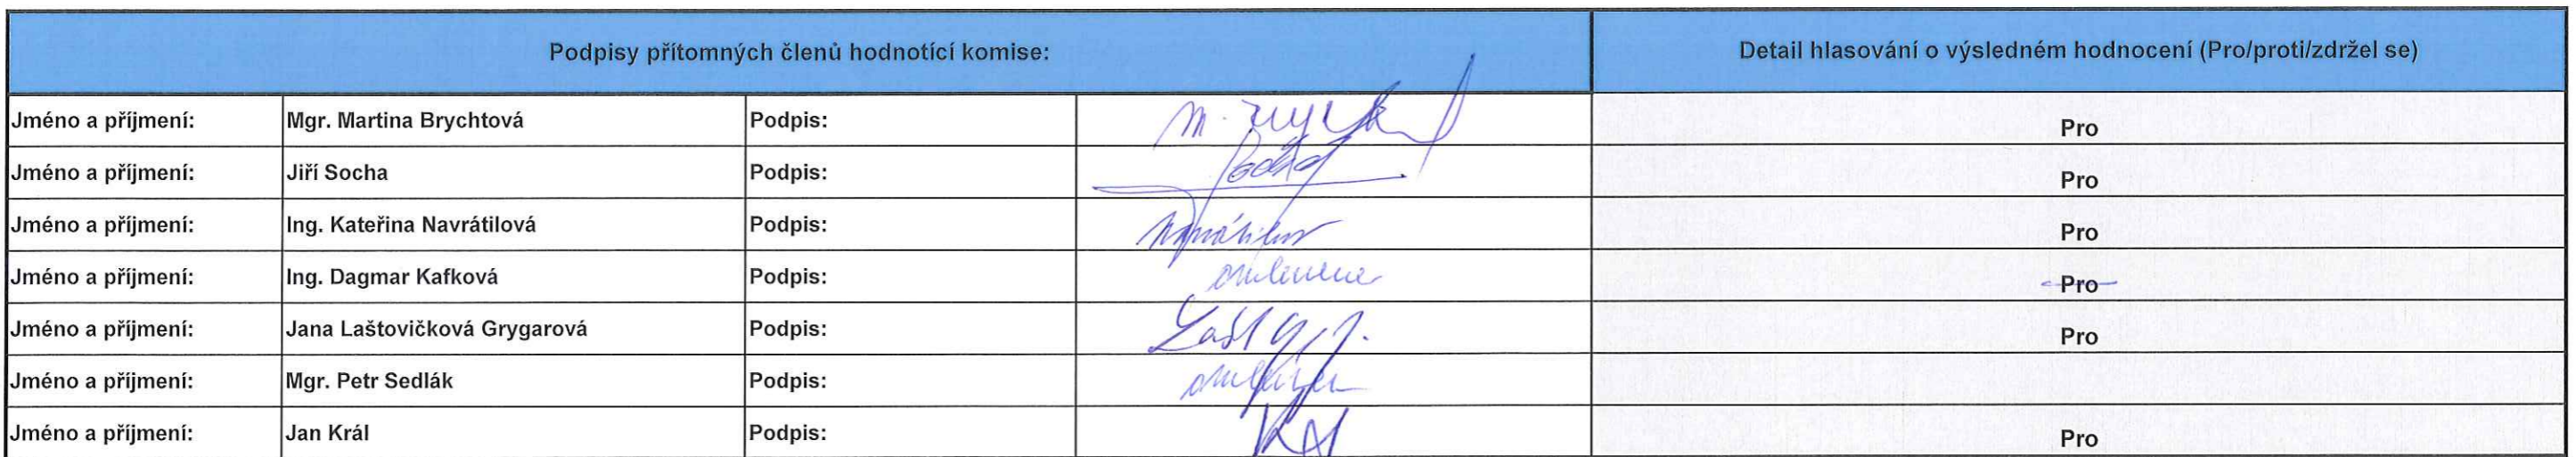 Podpisy přítomných členů hodnotící komise: Detail hlasování o výsledném hodnocení (Pro/proti/zdržel se)
Jméno a příjmení: Mgr. Martina Brychtová Podpis: Pro
Jméno a příjmení: Jiří Socha Podpis: Socha Pro
Jméno a příjmení: Ing. Kateřina Navrátilová Podpis: Pro
Jméno a příjmení: Ing. Dagmar Kafková Podpis: omluvena Pro
Jméno a příjmení: Jana Laštovičková Grygarová Podpis: Pro
Jméno a příjmení: Mgr. Petr Sedlák Podpis: omluven
Jméno a příjmení: Jan Král Podpis: Pro